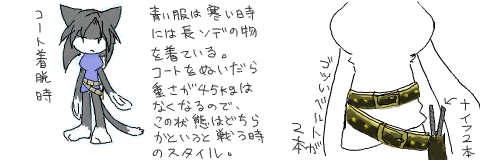 コート着脱時
青い服は寒い時
には長ソデの物
を着ている。
コートをぬいだら
重さが45kgは
なくなるので、
この状態はどちら
かというと戦う時
のスタイル。
ゴツいベルトが
2本
ナイフ2本